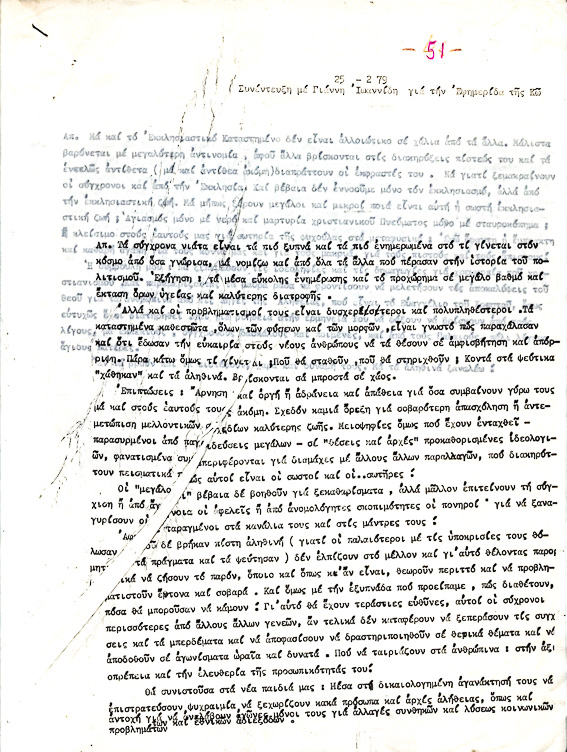 - 51 -
25 - 2 79
Συνέντευξη μέ Γιάννη Ἰωαννίδη γιά τήν Ἐφημερίδα τῆς Κῶ
Απ. Μά καί τό Ἐκκλησιαστικό Καταστημένο δέν εἶναι ἀλλοιώτικο σέ χάλια ἀπό τά ἄλλα. Μάλιστα
βαρύνεται μέ μεγαλύτερη ἀντινομία , ἀφοῦ ἄλλα βρίσκονται στίς διακηρύξεις πίστεώς του καί τά
ἐντελῶς ἀντίθετα ( μά καί ἀντίθεα ἀκόμη)διαπράττουν οἱ ἐκφραστές του . Νά γιατί ξεμακραίνουν
οἱ σύγχρονοι καί ἀπό τήν Ἐκκλησία. Καί βέβαια δέν ἐννοοῦμε μόνο τόν ἐκκλησιασμό, ἀλλά ἀπό
τήν ἐκκλησιαστική ζωή. Μά μήπως ξέρουν μεγάλοι καί μικροί ποιά εἶναι αὐτή ἡ σωστή ἐκκλησια-
στική ζωή ; Ἁγιασμός μόνο μέ νερό καί μαρτυρία χριστιανικοῦ Πνεύματος μόνο μέ σταυροκόπημα ;
Ἤ κλείσιμο στούς ἑαυτούς μας γιά σωτηρία τῆς ψυχούλας
Απ. Τά σύγχρονα νιάτα εἶναι τά πιό ξυπνά καί τά πιό ἐνημερωμένα στό τί γίνεται στόν
κόσμο ἀπό ὅσα γνώρισα, μά νομίζω καί ἀπό ὅλα τά ἄλλα πού πέρασαν στήν ἱστορία τοῦ πο-
λιτισμοῦ. Ἐξήγηση : τά μέσα εὔκολης ἐνημέρωσης καί τό προχώρημα σέ μεγάλο βαθμό καί
ἔκταση ὅρων ὑγείας καί καλύτερης διατροφῆς .
Ἀλλά καί οἱ προβληματισμοί τους εἶναι δυσχερέστεροι καί πολυπληθέστεροι .Τά
κατεστημένα καθεστῶτα ,ὅλων τῶν φύσεων καί τῶν μορφῶν ,εἶναι γνωστό πώς παραχάλασαν
καί ὅτι ἔδωσαν τήν εὐκαιρία στούς νέους ἀνθρώπους νά τά θέσουν σέ ἀμφισβήτηση καί ἀπόρ-
ριψη. Πάρα κάτω ὅμως τί γίνεται ; Ποῦ θά σταθοῦν ,ποῦ θά στηριχθοῦν ; Κοντά στά ψεύτικα
"χάθηκαν" καί τά ἀληθινά. Βρίσκονται σά μπροστά σέ χάος.
Ἐπιπτώσεις : Ἄρνηση καί ὀργή ἤ ἀδράνεια καί ἀπάθεια γιά ὅσα συμβαίνουν γύρω τους
μά καί στούς ἑαυτούς τους ἀκόμη. Σχεδόν καμιά ὄρεξη γιά σοβαρότερη ἀπασχόληση ἤ ἀντε-
μετώπιση μελλοντικῶν σχεδίων καλύτερης ζωῆς. Μειοψηφίες ὅμως πού ἔχουν ἐνταχθεῖ -
παρασυρμένοι ἀπό παγιδεύσεις μεγάλων - σέ "θέσεις καί ἀρχές" προκαθορισμένες ἰδεολογι-
ῶν, φανατισμένα συμπεριφέρονται γιά διαμάχες μέ ἄλλους ἄλλων παραλλαγῶν, πού διακηρύτ-
τουν πεισματικά πώς αὐτοί εἶναι οἱ σωστοί καί οἱ..σωτῆρες !
Οἱ "μεγάλοι" βέβαια δέ βοηθοῦν γιά ξεκαθαρίσματα , ἀλλά μᾶλλον ἐπιτείνουν τή σύγ-
χιση ἤ ἀπό ἄγνοια οἱ ἀφελεῖς ἤ ἀπό ἀνομολόγητες σκοπιμότητες οἱ πονηροί γιά νά ξανα-
γυρίσουν οἱ ταραγμένοι στά κανάλια τους καί στίς μάντρες τους !
Ἀφοῦ δέ βρῆκαν πίστη ἀληθινή ( γιατί οἱ παλαιότεροι μέ τίς ὑποκρισίες τους θό-
λωσαν τά πράγματα καί τά ψεύτησαν ) δέν ἐλπίζουν στό μέλλον καί γι'αὐτό θέλοντας παρορ
μητικά νά ζήσουν τό παρόν, ὅποιο καί ὅπως κι ἄν εἶναι, θεωροῦν περιττό καί νά προβλη-
ματιστοῦν ἔντονα καί σοβαρά . Καί ὅμως μέ τήν ἐξυπνάδα πού προείπαμε , πώς διαθέτουν,
πόσα θά μποροῦσαν νά κάμουν ! Γι'αὐτό θά ἔχουν τεράστιες εὐθύνες, αὐτοί οἱ σύγχρονοι
περισσότερες ἀπό ἄλλους ἄλλων γενεῶν, ἄν τελικά δέν καταφέρουν νά ξεπεράσουν τίς συγχ
σεις καί τά μπερδέματα καί νά ἀποφασίσουν νά δραστηριοποιηθοῦν σέ θετικά θέματα καί νά
ἀποδοθοῦν σέ ἀγωνίσματα ὡραῖα καί δυνατά . Πού νά ταιριάζουν στά ἀνθρώπινα : στήν ἀξι
οπρέπεια καί τήν ἐλευθερία τῆς προσωπικότητάς του!
Θά συνιστοῦσα στά νέα παιδιά μας : Μέσα στή δικαιολογημένη ἀγανάκτησή τους νά
ἐπιστρατεύσουν ψυχραιμία νά ξεχωρίζουν κακά πρόσωπα καί ἀρχές ἀλήθειας, ὅπως καί
ἀντοχή γιά νά ἀναλάβουν ἀγῶνες μόνοι τους γιά ἀλλαγές συνθηκῶν καί λύσεως κοινωνικῶν
προβλημάτων καί ἐθνικῶν ἀδιεξόδων .